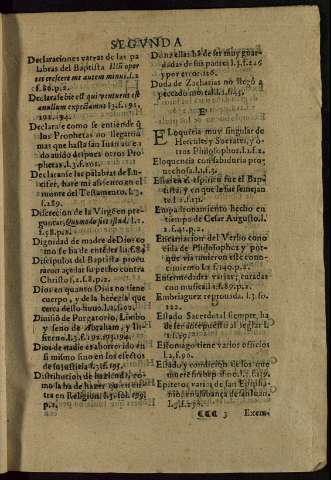 SEGVNDA
Declaraciones varias de las palabras
labras del Baptista Illũ oportet
tet crescere me autem minui. l.2
f.86.p.2.
Declarase
anullum expectamus l.3. f.191.
192.194.
Declarase como se entiende q̃
los Prophetas no llegaron
mas que hasta san Juan auiendo
do auido despues otros Prophetas
phetas. l.3. f.201.
Declaranse las palabras de Lucifer
cifer, hare mi assiento en el
monte del Testamento. l.3.
f.289.
Discrecion de la Virgẽ en preguntar
guntar, Quomodo fiet istud. l.2.
f.58.p.2.
Dignidad de madre de Dios como
mo se ha de entẽder l.1. f.84
Discipulos del Baptista procuraron
raron açelar su pecho contra
Christo f.2. f.82.p.2.
Dios en quanto Dios no tiene
cuerpo, y de la heregia
cerca desto huuo. l.2. f.02.
Diuisiõ de Purgatorio, Limbo
y seno de Abraham, y Infierno
fierno. l.3. f. 192.193.194.
Dios de nadie es aborrecido en
si mismo sino en los efectos
de su justicia. l.3. f.195.
Distribucion de hazienda, como
mo la ha de hazer quien entra
tra en Religion. l.3. fol. 199.
p.2.
Donzellas ha de ser muy guardadas
dadas de sus padres l.3. f.226
y por error 126.
Duda de Zacharias no llegò a
peccado mortal. l.1. f.43.
E
Eloquẽcia muy singular de
Hercules y Socrates, y otros
tros Philosophos. l.1. f.2.
Eloquencia con sabiduria prouechosa
uechosa. l.1. f.3.
Elias en el espiritu fue el Baptista
tista, y en que le fue semejante
te l.1. f.31.
Empadronamiento hecho en
tiempo de Cesar Augusto. l.
2. f.41. p.2.
Encarnacion del Verbo conocida
cida de Philosophos y porque
que via vinieron este conocimiento
cimiento l.2. f.140.p.2.
Enfermedades varias, curadas
con musica. l.1. f.89.p.2.
Embriaguez reprouada. l.3. fo.
122.
Estado Sacerdotal siempre ha
de ser antepuesto al seglar l.
1. f.93.
Estomago tiene varios oficios
l.2. f.90.
Estado y condicion de los que
muere sin baptismo. l.1. f.119.
Epitetos varios de san Euphisanio
nio, en alabança de san Juan.
l.3. f.250.
CCC 3 Exem-